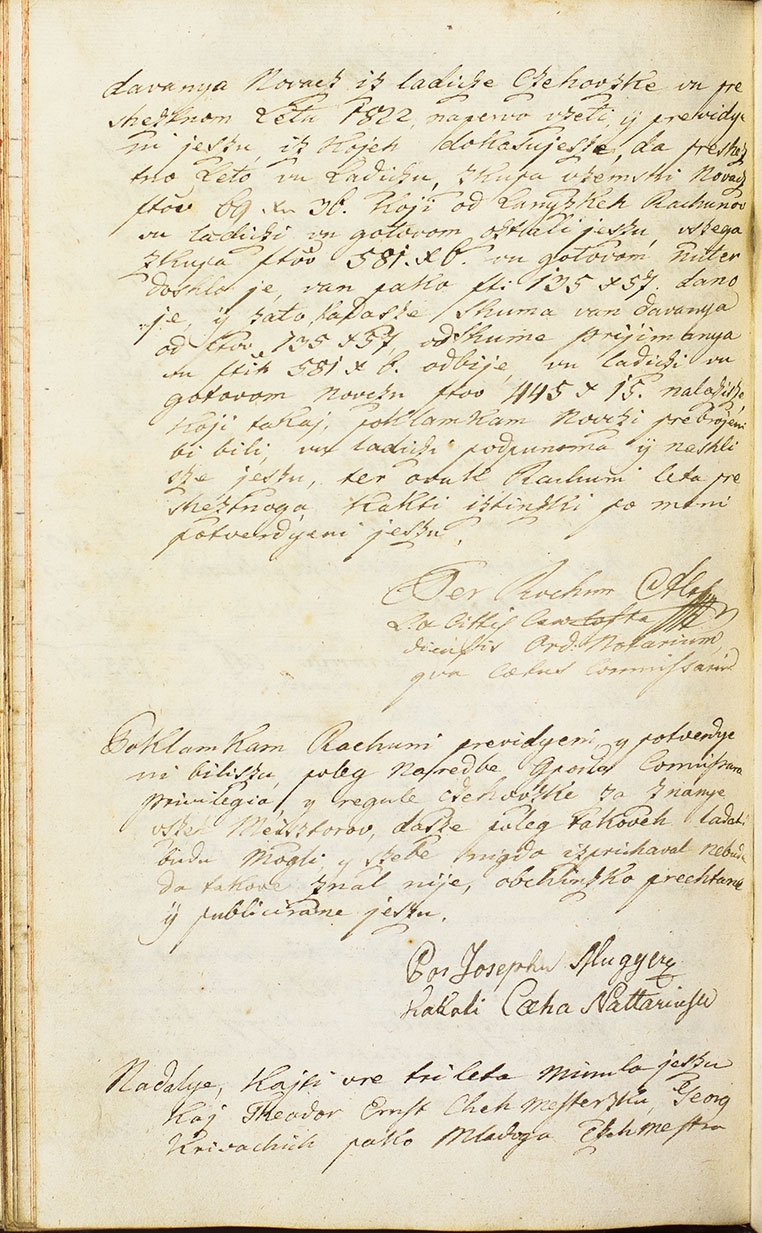 davanya Novacz iz ladicze Czehovzke vu pre
shesztnom Letu 1822, napervo vzeti, ÿ previdye
ni jeszu, iz kojeh dokasujesze, da preshesz
tno Leto vu Ladiczu, zkupa vzemshi Novacz
ftov 69 xr 36. koji od Lanyzkeh Rachunov
vu ladiczi vu gotovom osztali jeszu, vszega
zkupa ftov 581. x 6. vu gotovom nuter
doshlo je, van pako fti 135 x 57. dano
je, ÿ zato, kada sze shuma van davanya
od ftov 135 x 57, od shume prijimanya
vu fteh 581 x 6. odbije, vu ladiczi vu
gotovom Novczu ftov 445 x 15. nalazisze,
koji takaj, poklamkam Novczi prebrojeni
bi bili, vu ladiczi podpunoma ÿ nashli
sze jeszu, ter ovak Rachuni leta pre
shesztnoga kakti isztinszki po meni
potverdyeni jeszu.
Per Rochum
Ord. Notarium,
qua Cætus Commissarium
Poklamkam Rachuni previdyeni, y potverdye
ni biliszu, poleg Naredbe Gposla Comissara
privilegia, y regule Czehovzke za znanye
vszeh Mesztrov, dasze poleg takoveh ladati
budu mogli, y szebe nigdo izprichaval nebude
da takove znal nije, obchinszko prechtane
ÿ publicirane jeszu.
Por Josephu Mugyerz
kakoti Cæha Nattariusu
Nadalye, kajti vre tri leta minula jeszu
kaj Theodor Ernst Cheh mesterszku, Georg
Krivachich pako Mladoga Czehmestra